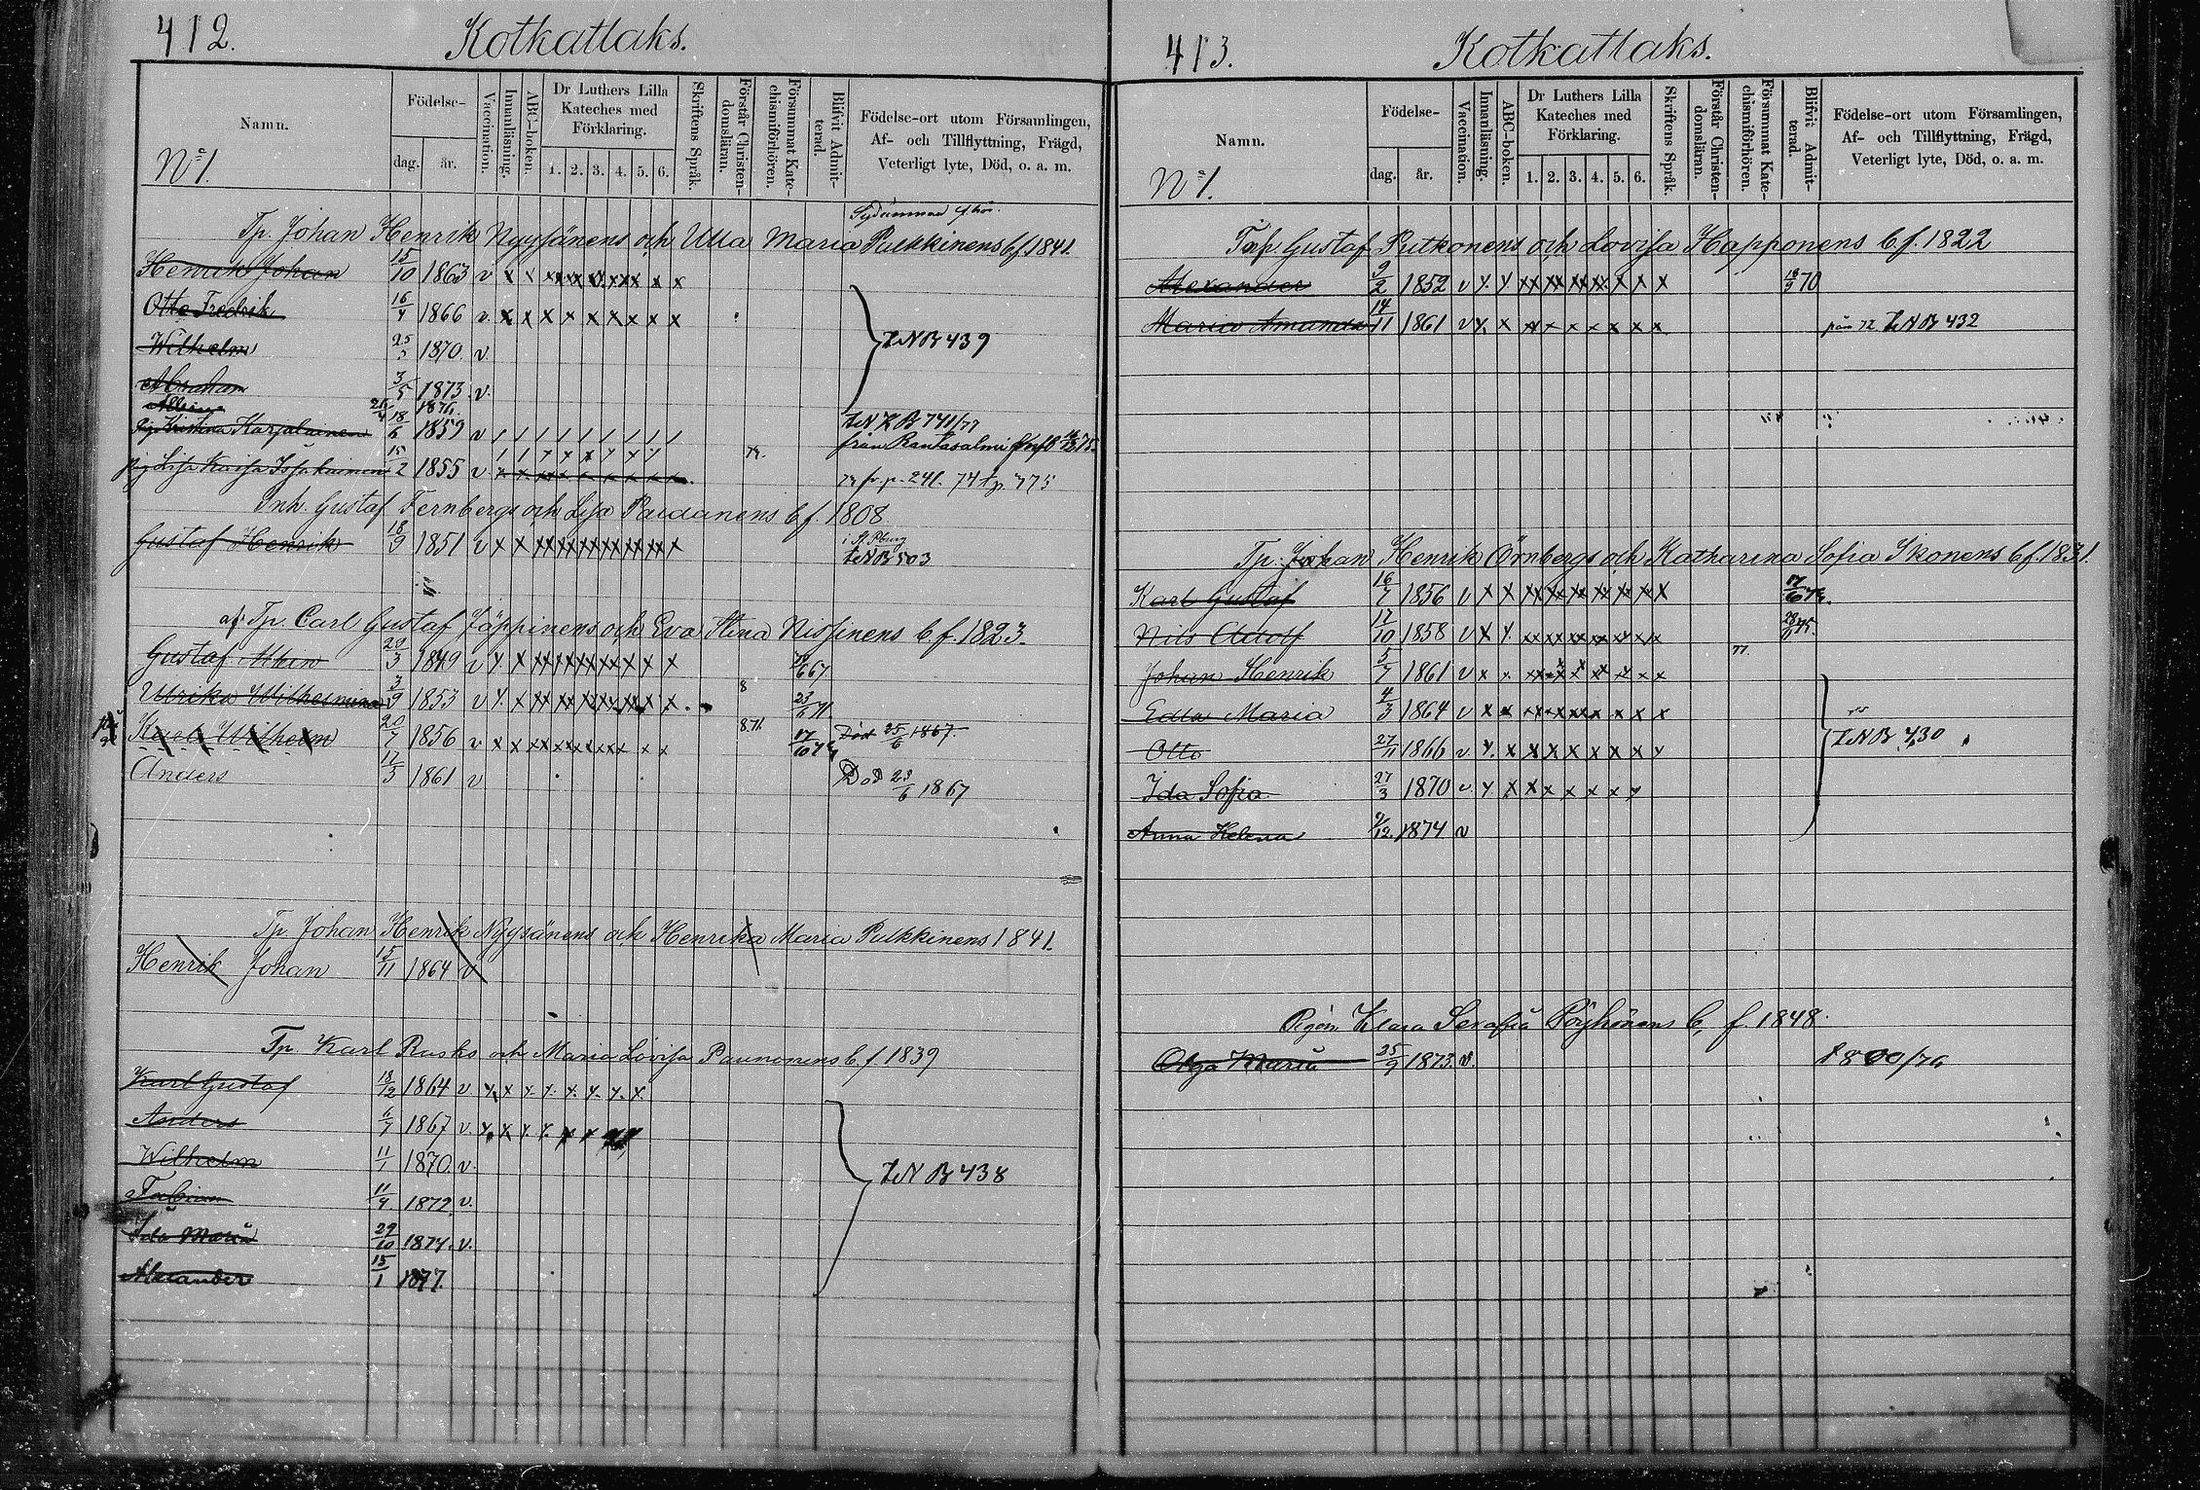 412. Kotkatlaks.
Namn.
No 1.
Födelse-
dag. år.
Vaccination.
Innanläsning.
ABC-boken.
Dr Luthers Lilla
Kateches med
Förklaring.
1. 2. 3. 4. 5. 6.
Skriftens Språk.
Förstår Christen-
domsläran.
Försummat Kate-
chismiförhören.
Blifvit Admit-
terad.
Födelse-ort utom Församlingen,
Af- och Tillflyttning, Frägd,
Veterligt lyte, Död, o. a. m.
Tp. Johan Henrik Nyyssänens och Ulla Maria Pulkkinens b. f. 1841.
Henrik Johan 15/10 1863 v x x xx xx xx xx x x
Otto Fredrik 16/4 1866 v x x x x x x x x x
Wilhelm 1870. v. N B 439
Abraham 3/5 1873 v.
Albin 1876.
Kristina Karjalainen 18/6 1859 v från Rantasalmi
Pig. Lisa Kaisa 15/2 1855 v fr. p. 241. 74 t. p. 775
Inh. Gustaf Fernbergs och Lisa Paldanens b. f. 1808
Gustaf Henrik 18/9 1851 v x x xx xx xx xx xx xx x N B 503
af. Tp. Carl Gustaf Jäppinens och Eva Stina Nissinens b. f. 1823.
Gustaf Albin 20/3 1849 v x x xx xx xx x x x x 67
Ulrika Wilhelmina 3/9 1853 v x x xx xx xx xx x x 8 23/6 71.
Karl Wilhelm 20/7 1856 v x x xx xx xx xx x x 8.71. 17/10 74 Död 25/6 1867
Anders 11/3 1861 v Död 23/6 1867
Tp. Johan Henrik Nyyssänens och Henrika Maria Pulkkinens 1841.
Henrik Johan 15/11 1864 v
Tp. Karl Rasks och Maria Lovisa Paunonens b. f. 1839
Karl Gustaf 18/12 1864 v x x x x x x x x
Anders 6/7 1867 v. x x x x x x
Wilhelm 11/1 1870 v. N B 438
Fabian 11/9 1872 v.
Ida Maria 29/10 1874. v.
Alexander 15/1 1877.
413. Kotkatlaks.
Namn.
No 1.
Födelse-
dag. år.
Vaccination.
Innanläsning.
ABC-boken.
Dr Luthers Lilla
Kateches med
Förklaring.
1. 2. 3. 4. 5. 6.
Skriftens Språk.
Förstår Christen-
domsläran.
Försummat Kate-
chismiförhören.
Blifvit Admit-
terad.
Födelse-ort utom Församlingen,
Af- och Tillflyttning, Frägd,
Veterligt lyte, Död, o. a. m.
Gustaf Putkonens och Lovisa Happonens b. f. 1822
Alexander 9/2 1852 v x x xx xx xx xx x x x 70
Maria Amanda 14/11 1861 v x x xx x x x x x x 72 N B 432
Tp. Johan Henrik Örnbergs och Katharina Sofia Ikonens b. f. 1831.
Karl Gustaf 16/7 1856 v x x xx xx xx xx xx x x
Nils Adolf 17/10 1858 v x x xx xx xx xx xx xx 75
Johan Henrik 5/7 1861 v x x xx xx x x x x x 77.
Edla Maria 4/3 1864 v x x xx xx xx x x x x
Otto 27/11 1866 v. x x x x x x x x x N B 430
Ida Sofia 27/3 1870 v x x x x x x x
Anna Helena 9/12. 1874 v
Klara Serafia Pöyhönens b. f. 1848.
Olga Maria 25/9 1873. v.